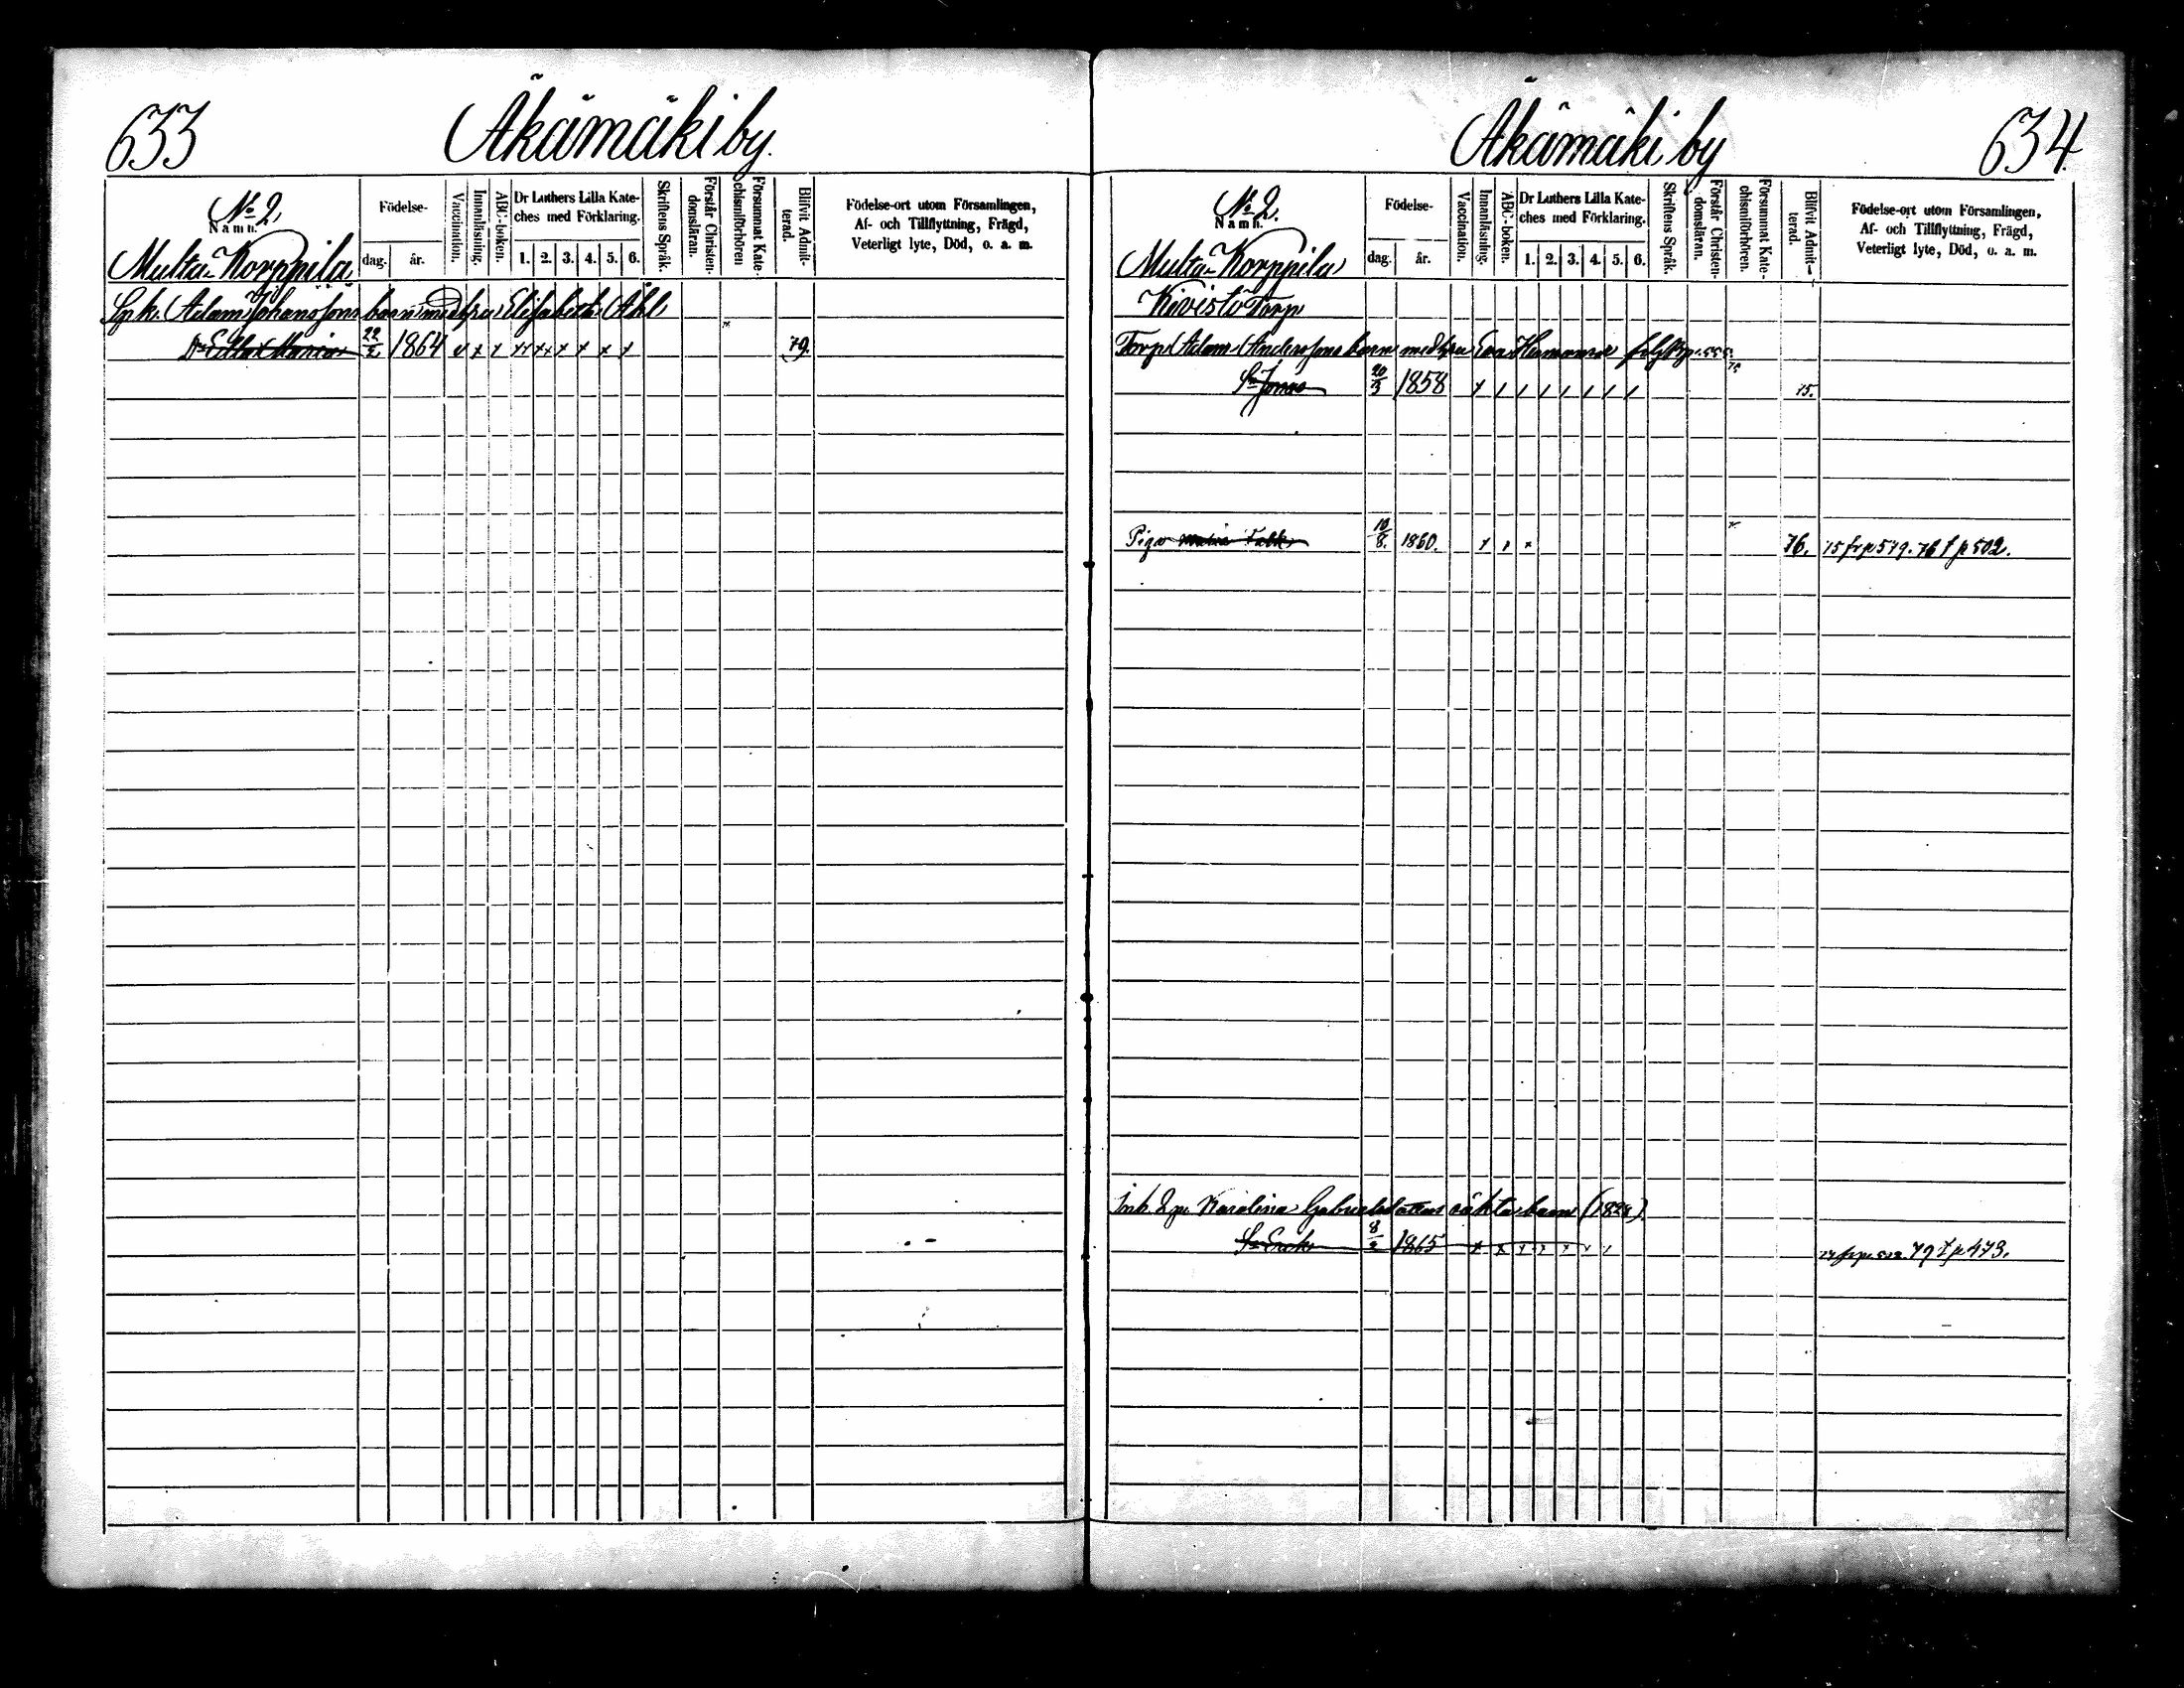 633
Äkämäki by.
No 2.
Namn.
Multia-Korppila
Födelse-
dag.
år.
Vaccination.
Innanläsning.
ABC-boken.
Dr Luthers Lilla Kate-
ches med Förklaring.
1. 2. 3. 4. 5. 6.
Skriftens Språk.
Förstår Christen-
domsläran.
Försummat Kate-
chismiförhören
Blifvit Admit-
terad.
Födelse-ort utom Församlingen,
Af- och Tillflyttning, Frägd,
Veterligt lyte, Död, o. a. m.
Adam Johanssons barn med hu Elisabeth
Maria 22/2 1864 x x x x x x x x x 79.
Äkämäki by
634.
No 2.
Namn.
Multia-Korppila
Födelse-
dag.
år.
Vaccination.
Innanläsning.
ABC-boken.
Dr Luthers Lilla Kate-
ches med Förklaring.
1. 2. 3. 4. 5. 6.
Skriftens Språk.
Förstår Christen-
domsläran.
Försummat Kate-
chismiförhören.
Blifvit Admit-
terad.
Födelse-ort utom Församlingen,
Af- och Tillflyttning, Frägd,
Veterligt lyte, Död, o. a. m.
Kivistö Torp
Torp. Adam Anderssons barn med hu Eva
Sn Jonas 1858 75.
Piga Maria Falk 10/8. 1860. x 76. 15 fr p 579. 76 t p 502.
Inh. Karolina Gabrielsdotters oäkta barn
Sn Erik 8/2 1865 x x x x x 79 t p 473.